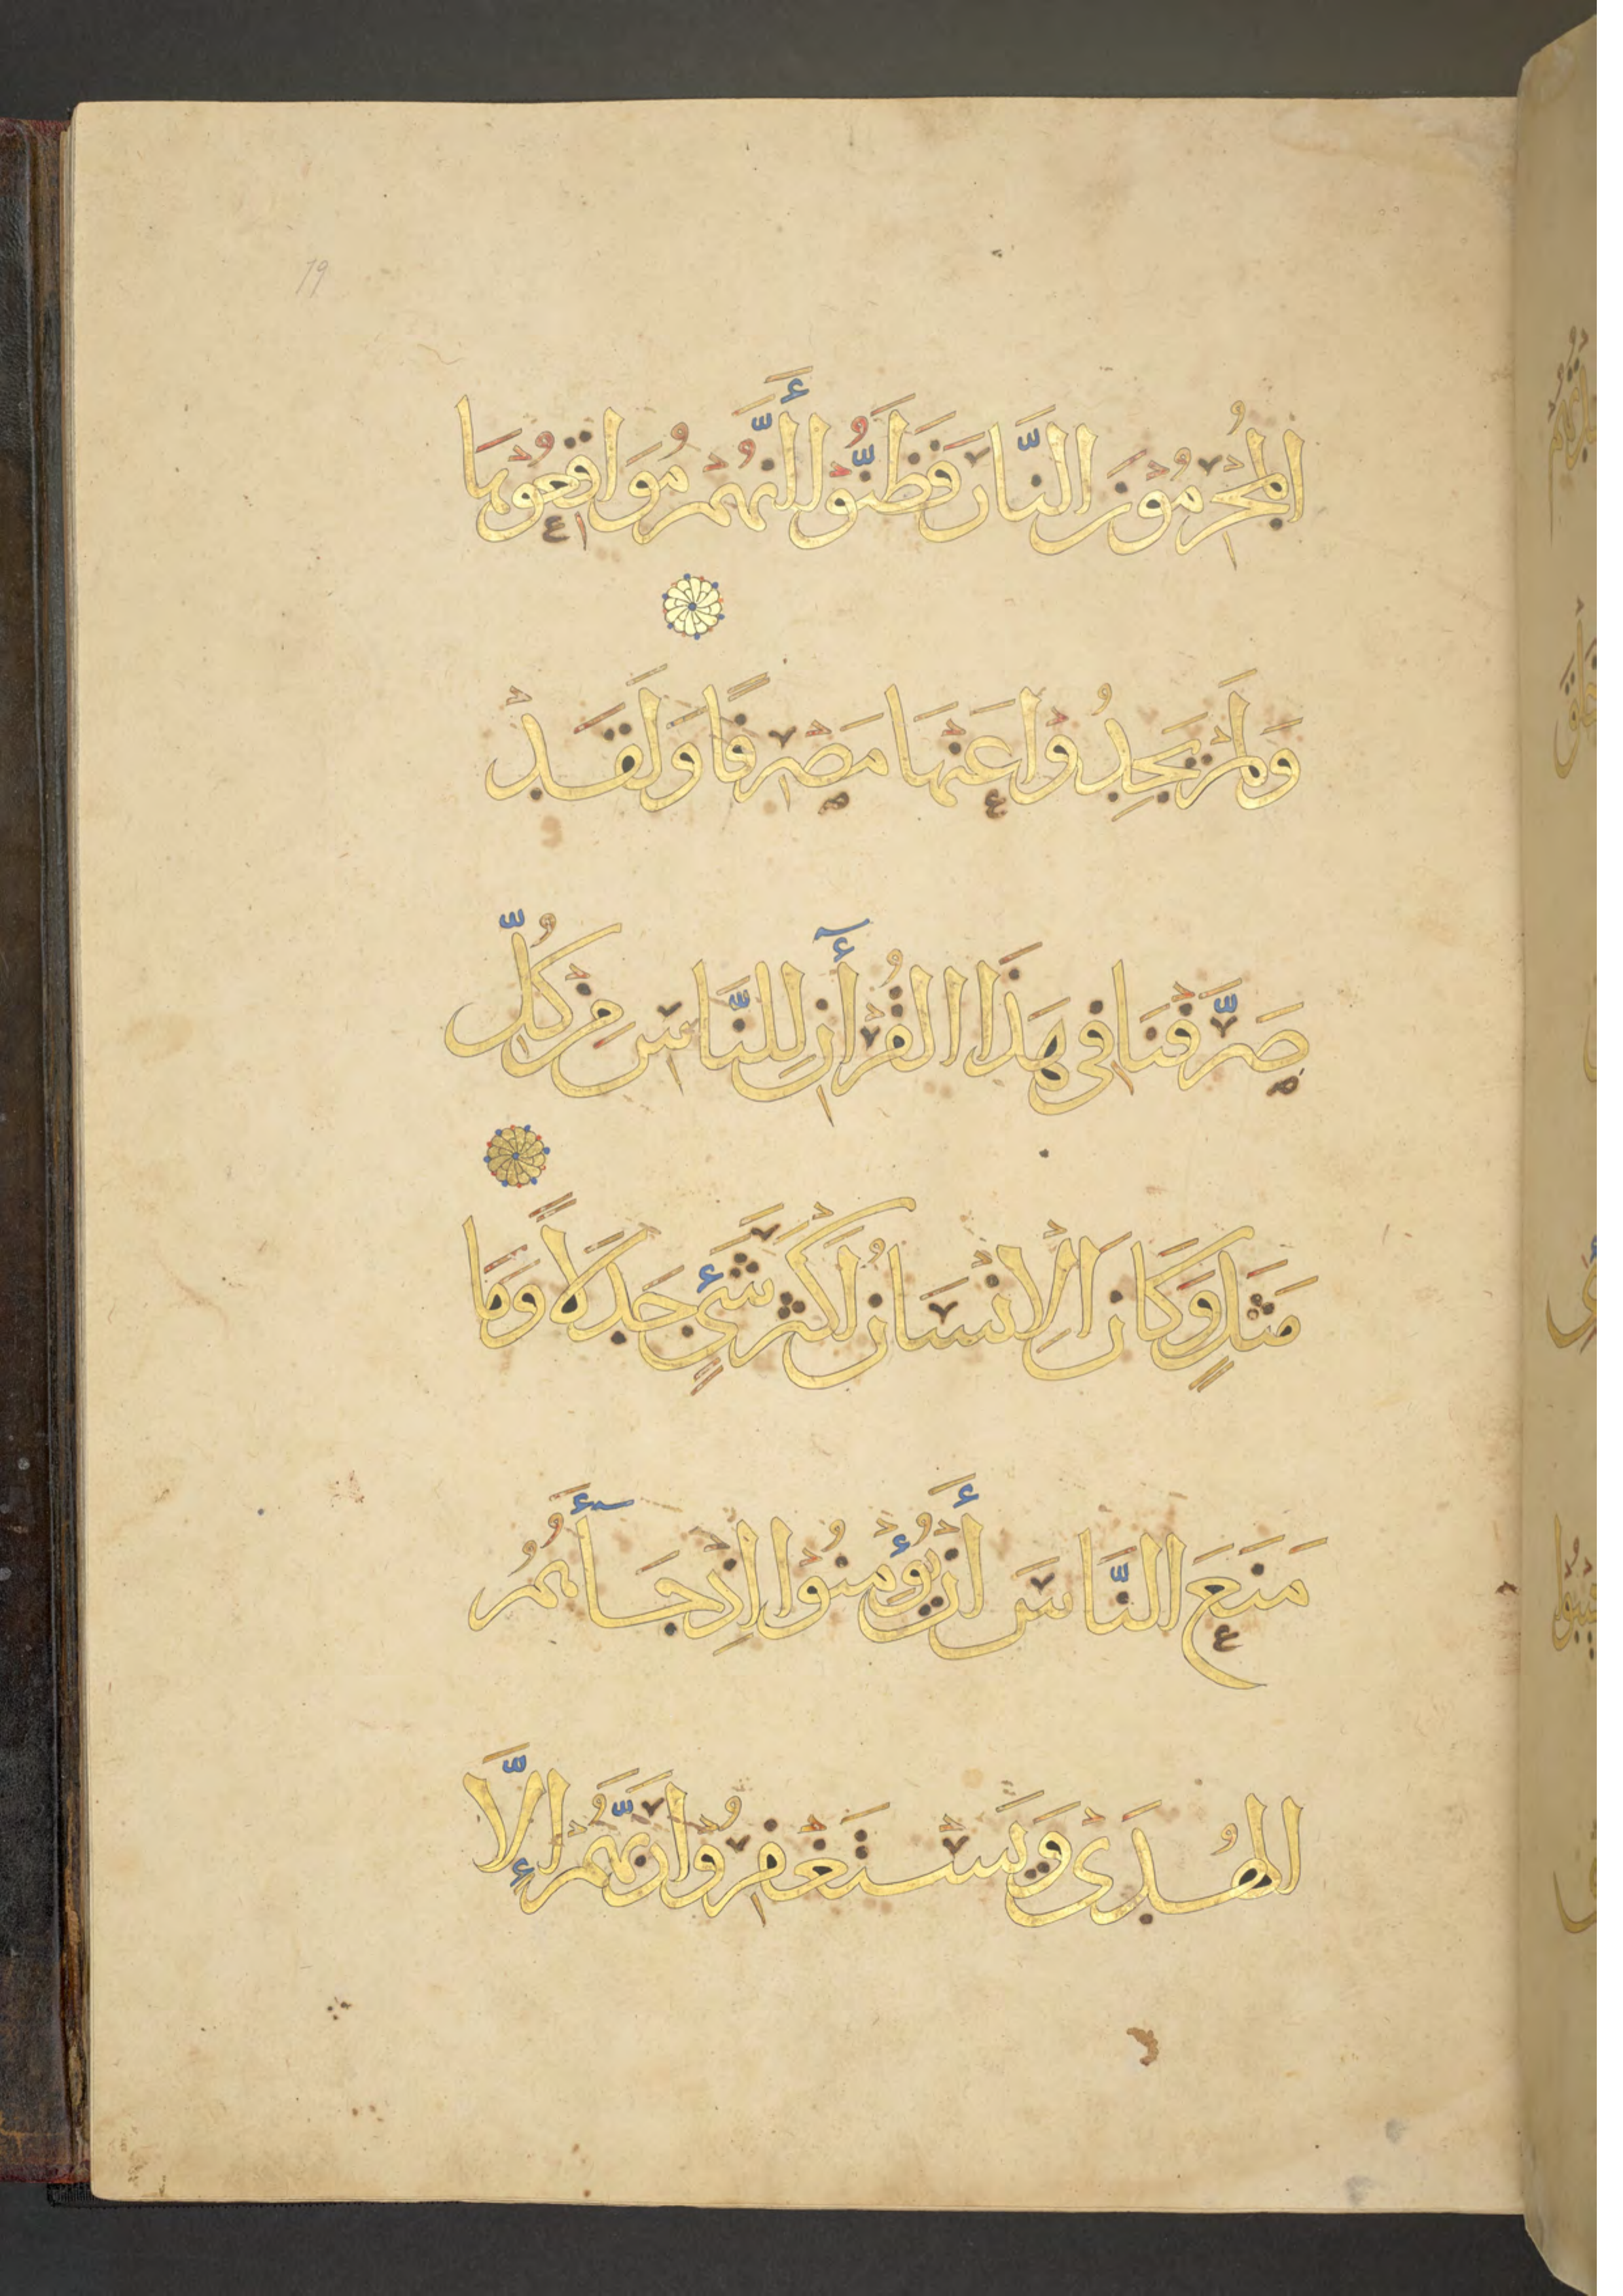 19
المُجْرِمُوْنَ النَّارَ فَظَنُّوْا أَنَّهُمْ مُوَاقِعُوْهَا
وَلَمْ يَجِدُوْا عَنْهَا مَصْرِفًا وَلَقَدْ
صَرَّفْنَا فِي هَذَا القُرْأٓنِ لِلنَّاسِ مِنْ كُلِّ
مَثَلٍ وَكَانَ الْإِنْسَانُ أَكْثَرَ شَيْءٍ جَدَلًا وَمَا
مَنَعَ النَّاسَ أَنْ يُؤْمِنُوْا إِذْ جَآءَهُمُ
الهُدَى وَيَسْتَغْفِرُوْا رَبَّهُمْ إِلَّا